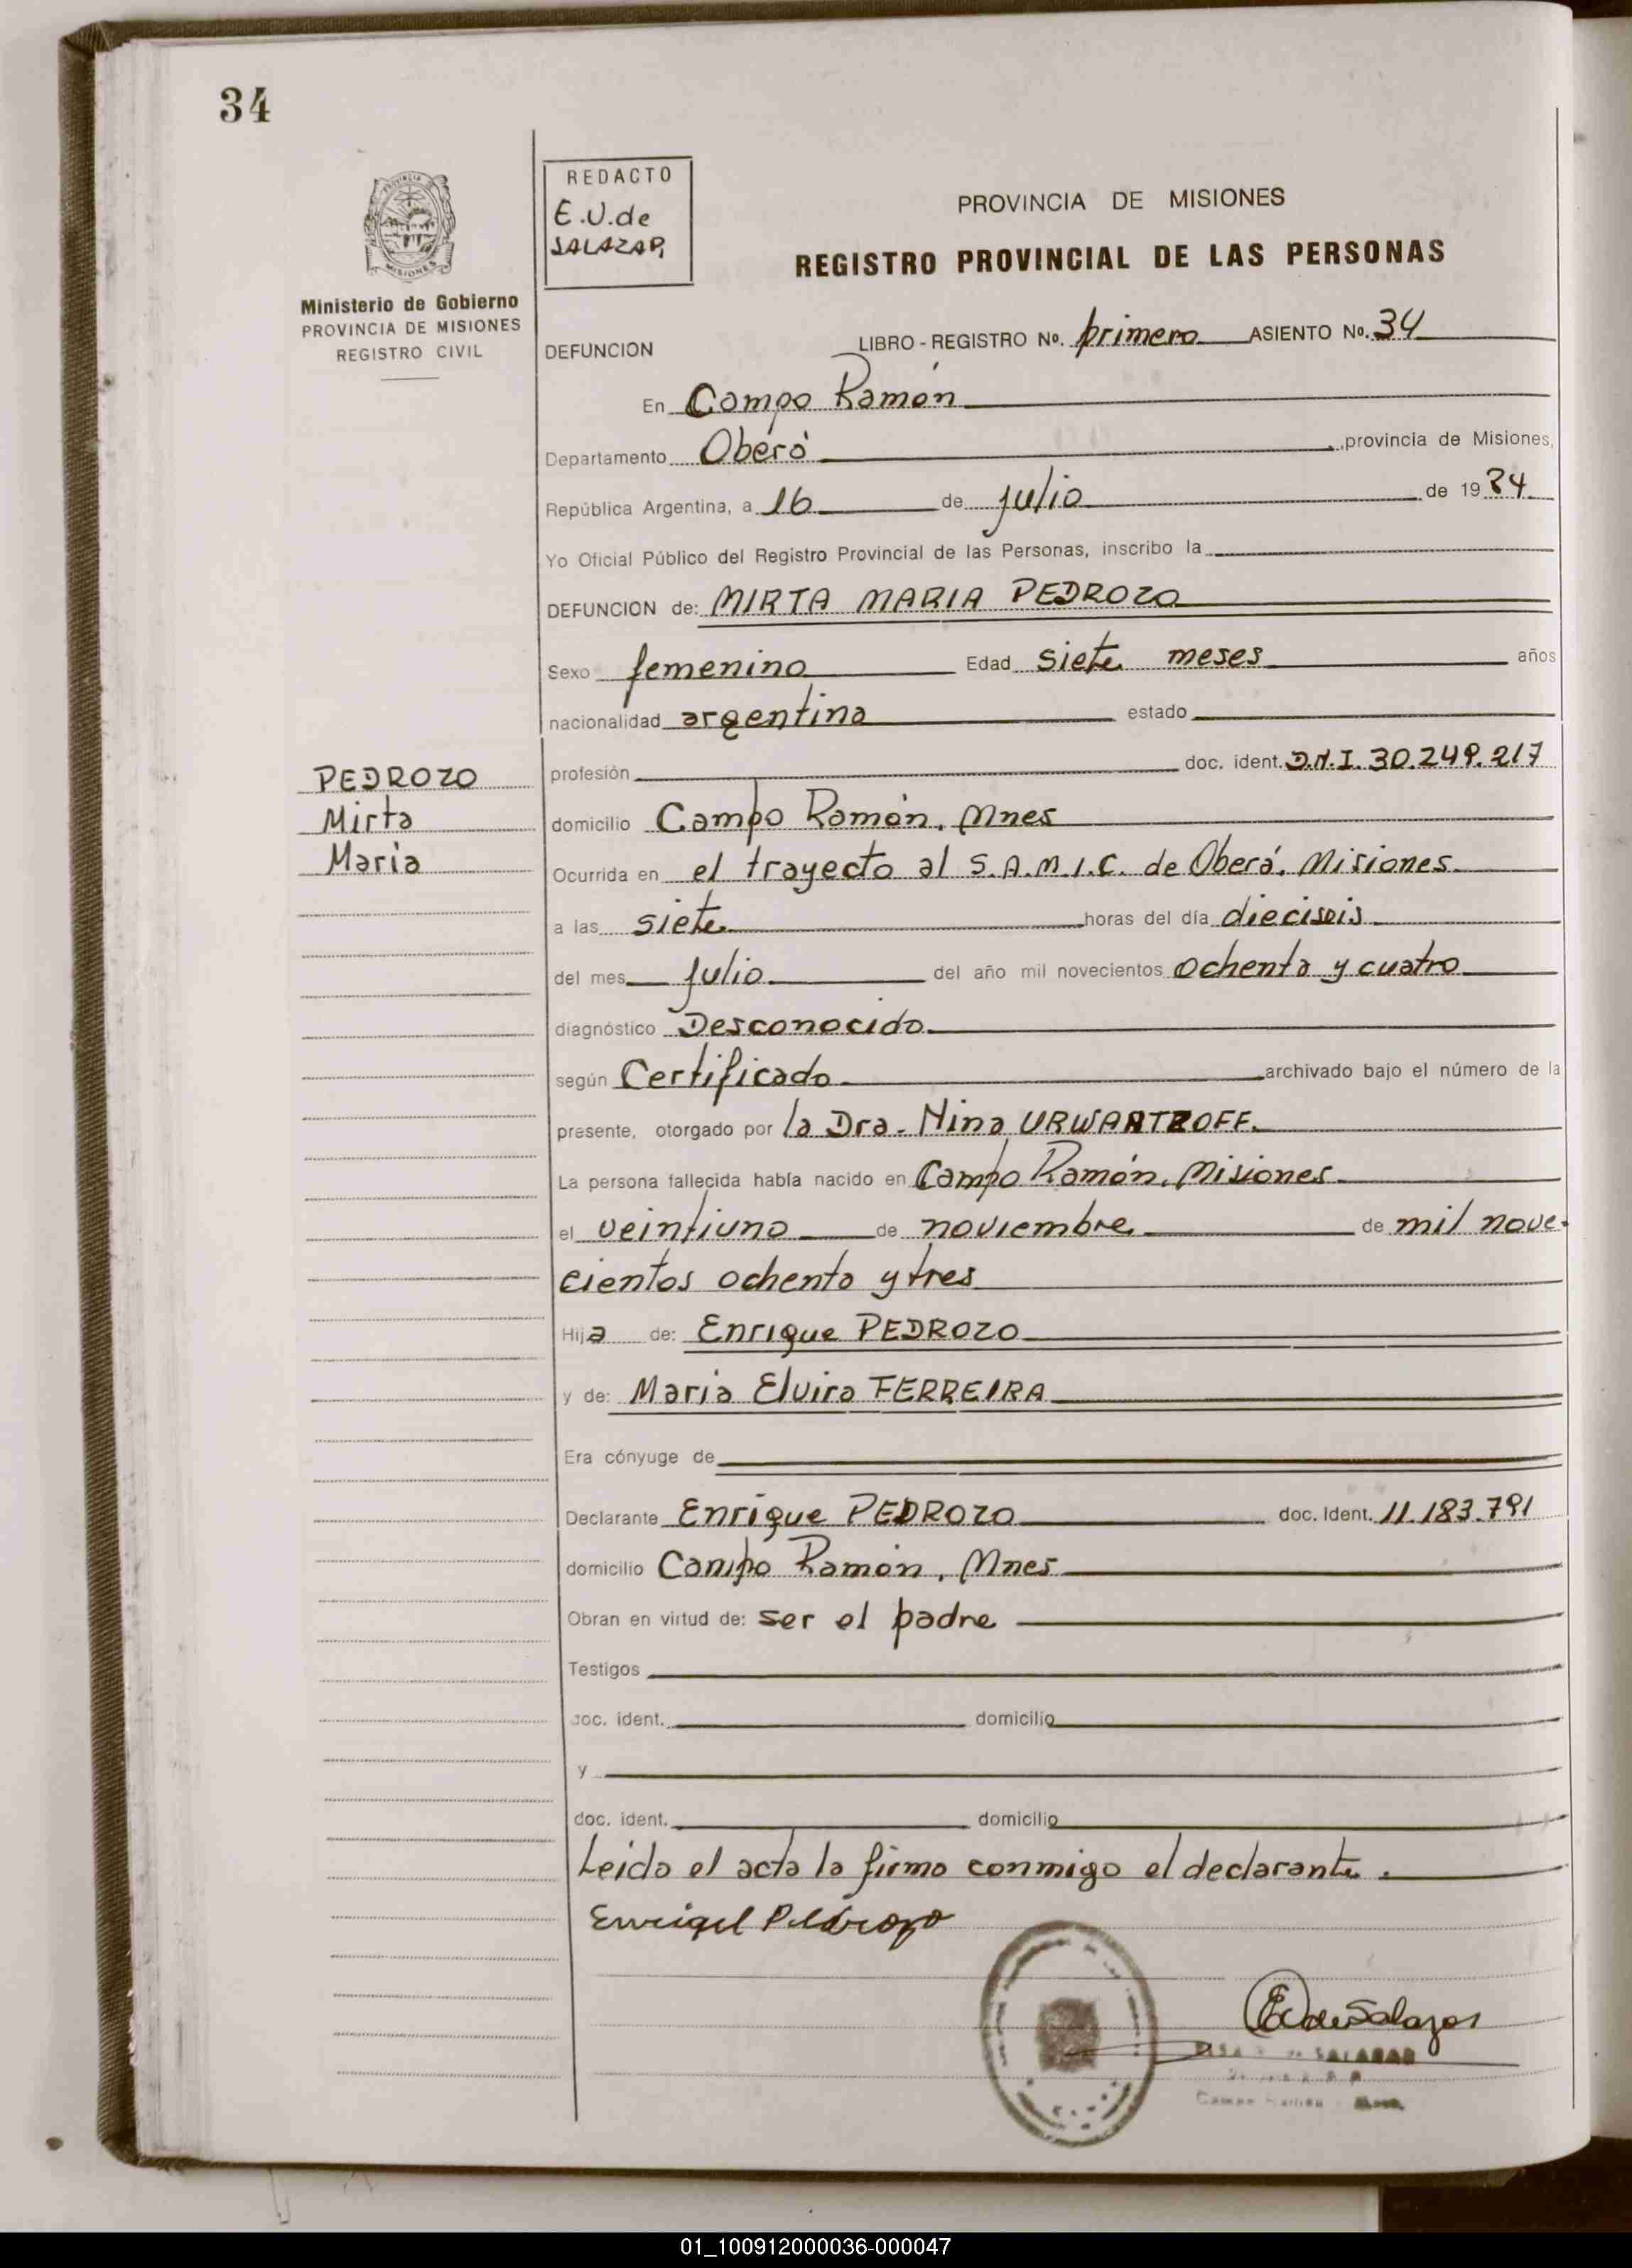 34
REDACTO
E.U.de
SALAZAR
PROVINCIA DE MISIONES
REGISTRO PROVINCIAL DE LAS PERSONAS
PROVINCIA DE
MISIONES
Ministerio de Gobierno
PROVINCIA DE MISIONES
REGISTRO CIVIL
DEFUNCION LIBRO - REGISTRO Nº. primero ASIENTO Nº. 34
En Campo Ramón
Departamento Oberá , provincia de Misiones,
República Argentina, a 16 de julio de 1984
Yo Oficial Público del Registro Provincial de las Personas, inscribo la
DEFUNCION de: MIRTA MARIA PEDROZO
Sexo femenino Edad siete meses años
nacionalidad argentina estado
PEDROZO
Mirta
Maria
profesión doc. ident. D.N.I. 30.249.217
domicilio Campo Ramón, Mnes
Ocurrida en el trayecto al S.A.M.I.C. de Oberá. Misiones
a las siete horas del día dieciseis
del mes julio del año mil novecientos ochenta y cuatro
diagnóstico Desconocido
según Certificado archivado bajo el número de la
presente, otorgado por la Dra. Nina URWANTZOFF.
La persona fallecida había nacido en Campo Ramón, Misiones
el veintiuno de noviembre de mil nove-
cientos ochenta y tres
Hija de: Enrique PEDROZO
y de: Maria Elvira FERREIRA
Era cónyuge de
Declarante Enrique PEDROZO doc. Ident. 11.183.791
domicilio Campo Ramón, Mnes
Obran en virtud de: ser el padre
Testigos
doc. ident. domicilio
y
doc. ident. domicilio
Leida el acta la firma conmigo el declarante.
E de Salazar
SALAZAR
01_100912000036-000047